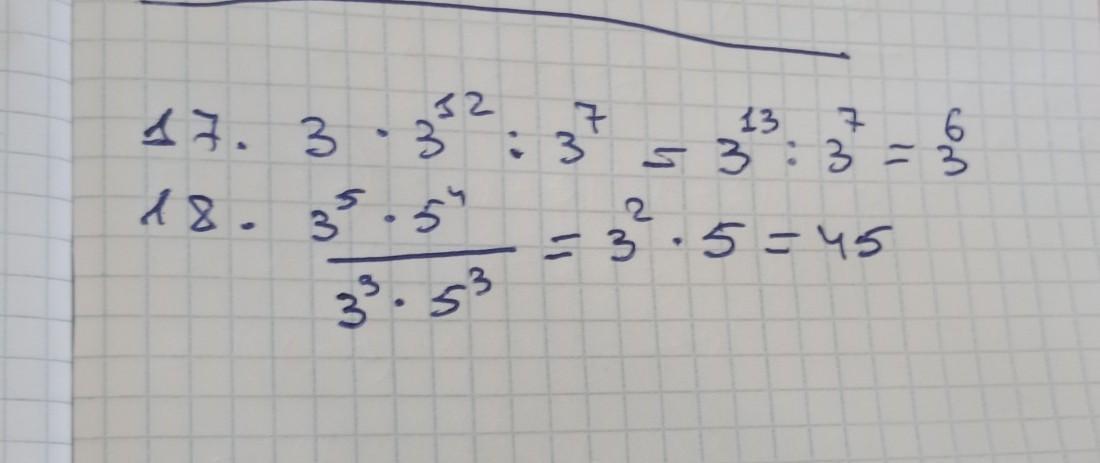 17. 3 · 3¹² : 3⁷ = 3¹³ : 3⁷ = 3⁶
18. 3⁵ · 5⁴ / 3³ · 5³ = 3² · 5 = 45